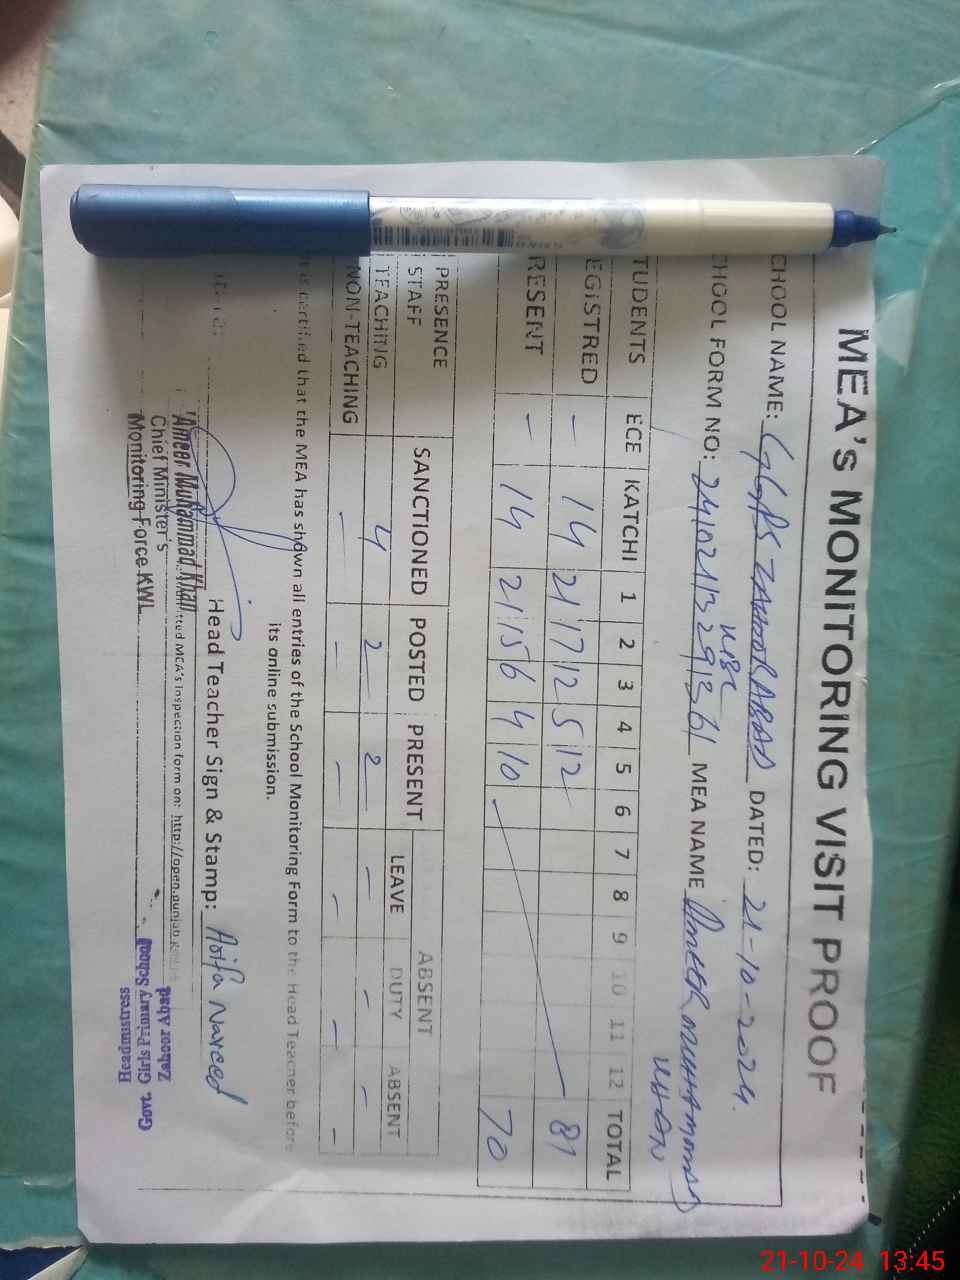 MEA'S MONITORING VISIT PROOF
CHOOL NAME: GGPS ZAHOOR ABAD DATED: 21-10-2024
CHOOL FORM NO: MEA NAME AMEER MUHAMMAD
KHAN
TUDENTS ECE KATCHI 1 2 3 4 5 6 7 8 9 10 11 12 TOTAL
EGISTRED - 14 21 17 12 5 12 81
RESENT - 14 21 15 6 4 10 70
PRESENCE STAFF SANCTIONED POSTED PRESENT ABSENT
LEAVE DUTY ABSENT
TEACHING 4 2 2 - - -
NON-TEACHING - - - - - -
is certified that the MEA has shown all entries of the School Monitoring Form to the Head Teacher before
its online submission.
Head Teacher Sign & Stamp: Arifa Naveed
Ameer Muhammad Khan
Chief Minister's
Monitoring Force KWL
MCA's inspection form on: http://open.punjab
Headmistress
Govt. Girls Primary School
Zahoor Abad
21-10-24 13:45